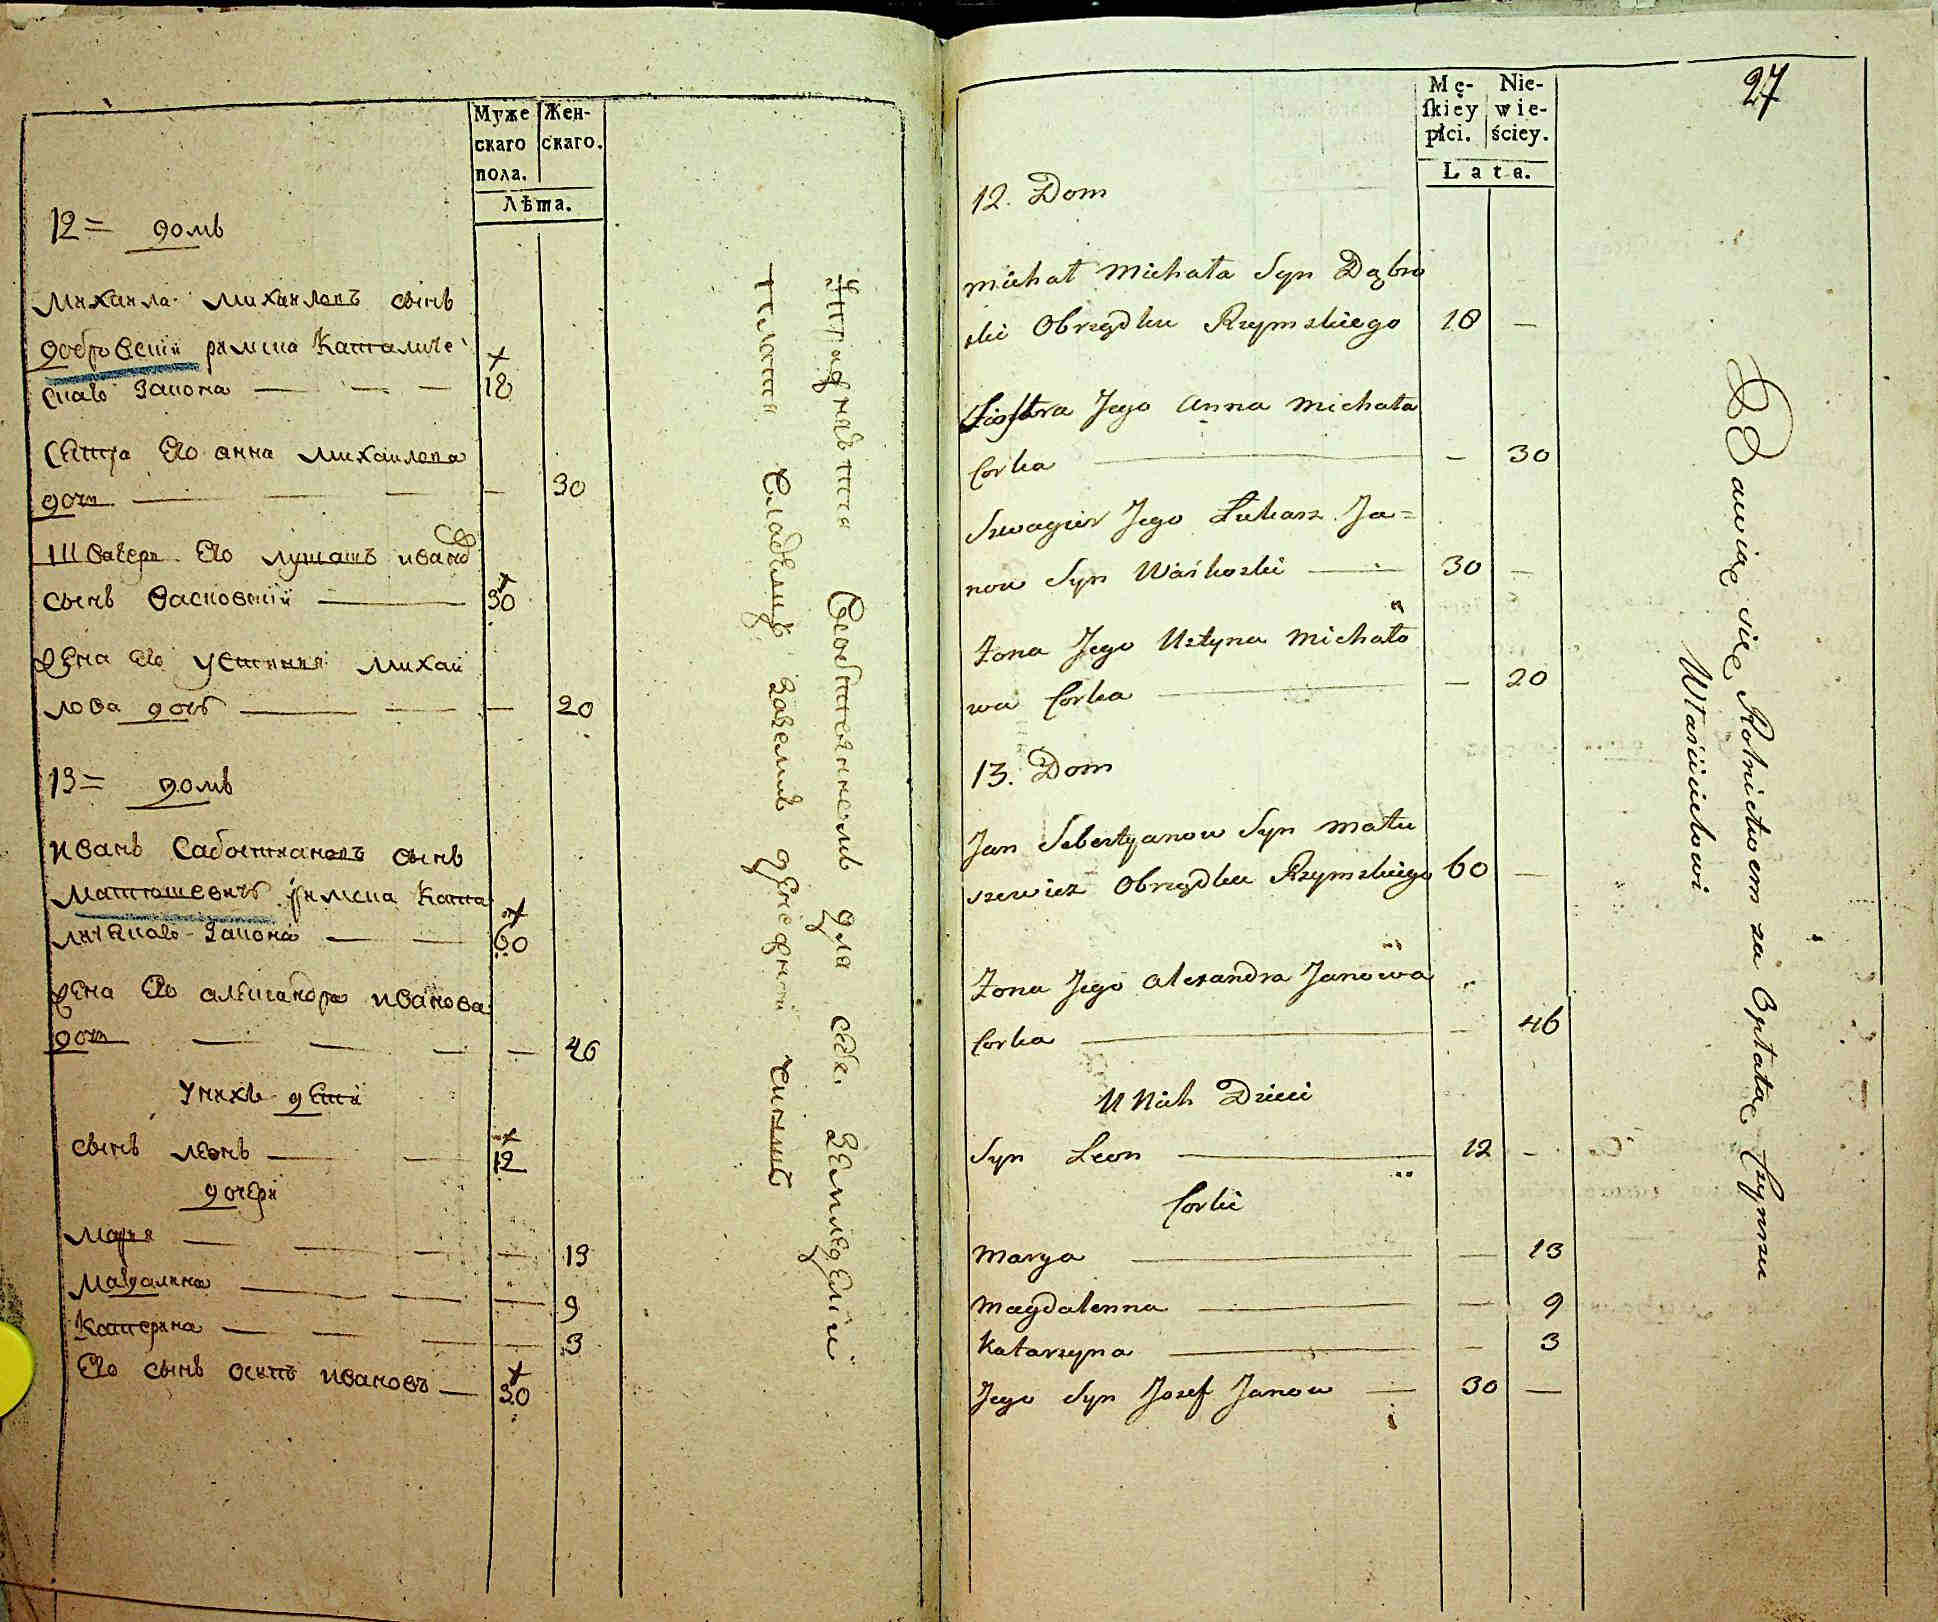 Муже
скаго
пола.
Жен-
скаго.
Лѣта.
12= домъ
Михаила Михаиловъ сынъ
добровскїй римска Католиче
скаго Закона — — — 18
Сестра Его анна Михаилова
дочи — — — — 30
Швагеръ Его лукашъ ивановъ
сынъ Васковскїй — 30
Жена Его устиния Михаи
лова дочъ — — — 20
13= домъ
иванъ Сабостиановъ сынъ
Матюшевичъ римска Като
личЕскаго Закона — — 60
Жена Его алЕксандра иванова
дочи — — — — 46
Унихъ дЕти
сынъ леонъ — — 12
дочери
Марья — — — — 13
Магдалина — — — — 9
Катерина — — — — 3
Его сынъ осипъ ивановъ — 30
для себя ЗЕмлЕдЕлїи
27
Mę-
skiéy
płci.
Nie-
wie-
ściey.
Lata.
12. Dom
Michał Michała Syn Dąbro
ski Obrządku Rzymskiego 18 —
Siostra Jego Anna Michała
Corka — — 30
Szwagier Jego Łukasz Ja=
now Syn Waśkoski — 30 —
Żona Jego Ustyna Michało
wa Corka — — 20
13. Dom
Jan Sebestyanow Syn Matu
szewicz Obrządku Rzymskiego 60 —
Żona Jego Alexandra Janowa
Corka — — 46
U Nich Dzieci
Syn Leon — 12 —
Corki
Marya — — 13
Magdalenna — — 9
Katarzyna — — 3
Jego Syn Jozef Janow — 30 —
Bawią się Rolnictwem za Opłatą Czynszu
Właścicielowi